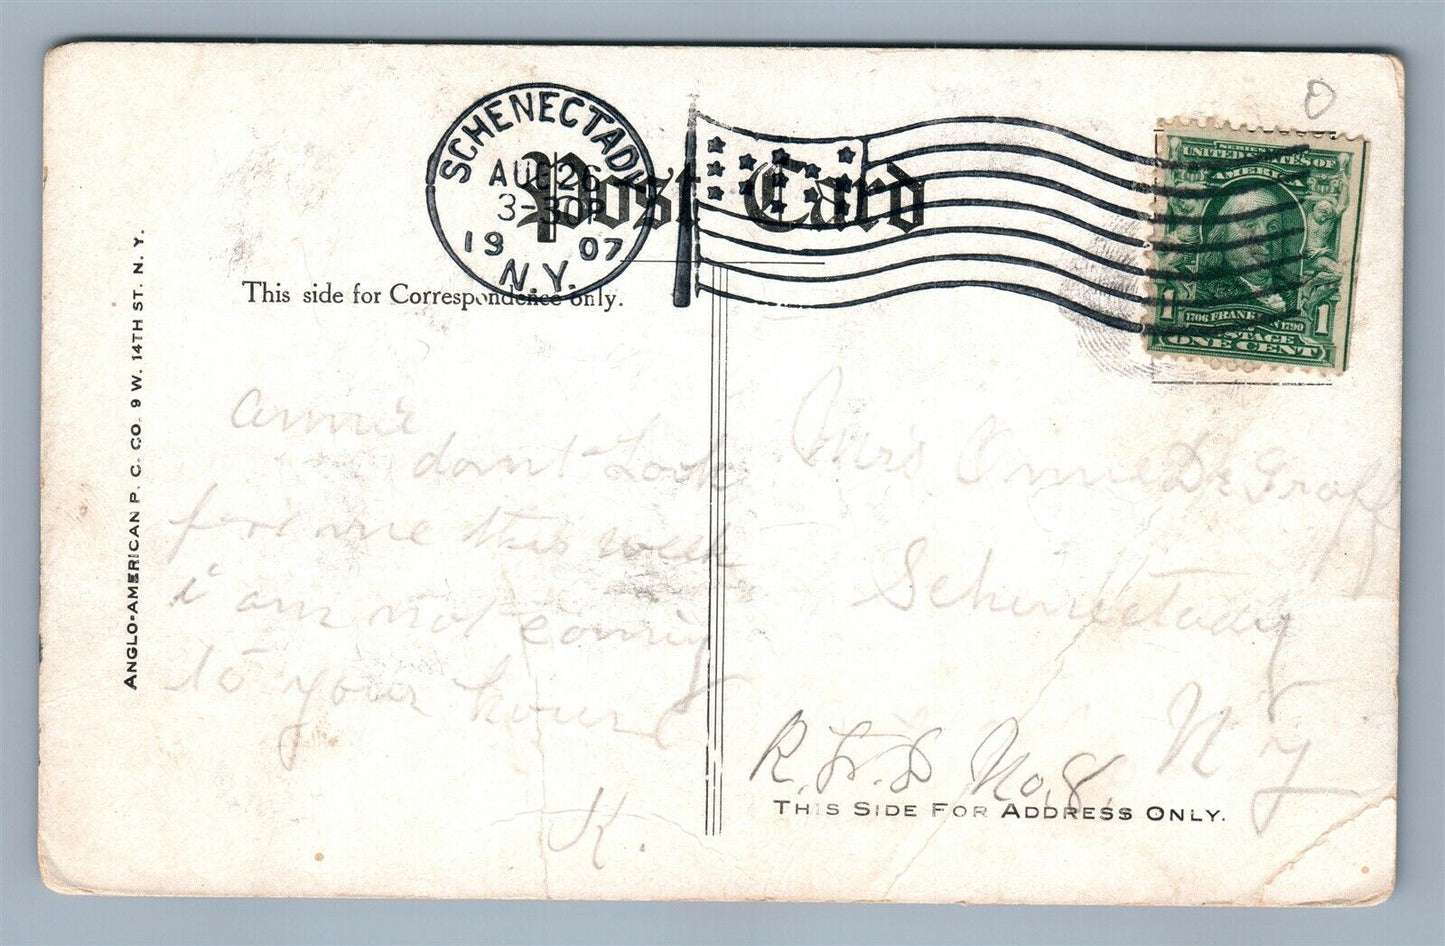 SCHENECTADY
AUG 26
3-30P
1907
N.Y.
Post Card
SERIES 1902
UNITED STATES OF
AMERICA
1706 FRANKLIN 1790
1 POSTAGE 1
ONE CENT
ANGLO-AMERICAN P. C. CO. 9 W. 14TH ST. N. Y.
This side for Correspondence only.
annie
dont Look
for me this week
i am not coming
to your hous
K.
Mrs Annie De Graff
Schenectady
N y
R. F. D No. 8.
THIS SIDE FOR ADDRESS ONLY.
O